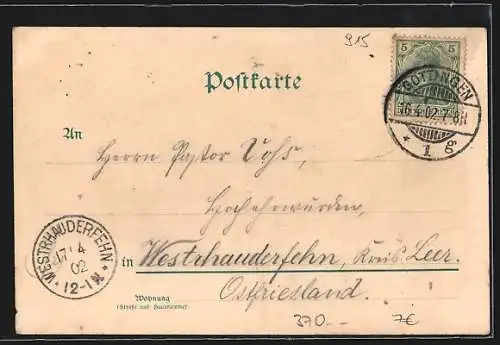 915
5 5
Postkarte
GÖTTINGEN
16.4.02.7-8N
* 1 g
An
Herrn Pastor Voß,
Hochehrwürden,
WESTRHAUDERFEHN
17/4
02
* 12-1N *
in Westrhauderfehn, Kreis Leer.
Ostfriesland.
Wohnung
(Straße und Hausnummer)
370.-- 7€